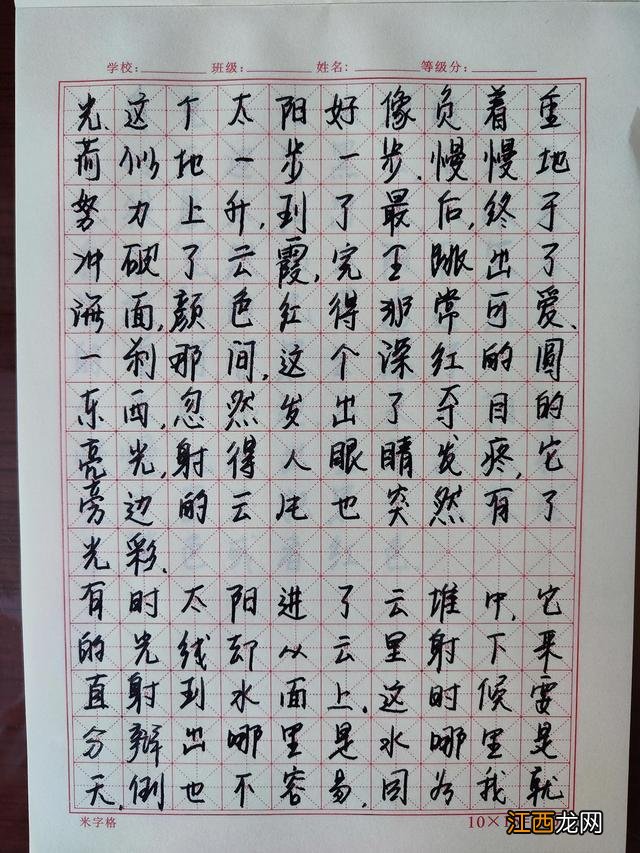 学校: 班级: 姓名: 等级分:
光.这个太阳好像负着重
荷似地一步一步.慢慢地
努力上升,到了最后,终于
冲破了云霞,完全跳出了
海面,颜色红得那常可爱.
一刹那间,这个深红的圆
东西,忽然发出了夺目的
亮光,射得人眼睛发疼,它
旁边的云片也突然有了
光彩.
有时太阳进了云堆中,它
的光线却从云里射下来
直射到水面上.这时候要
分辨出哪里是水哪里是
天,倒也不容易,因为我就
米字格 10×
江西龙网